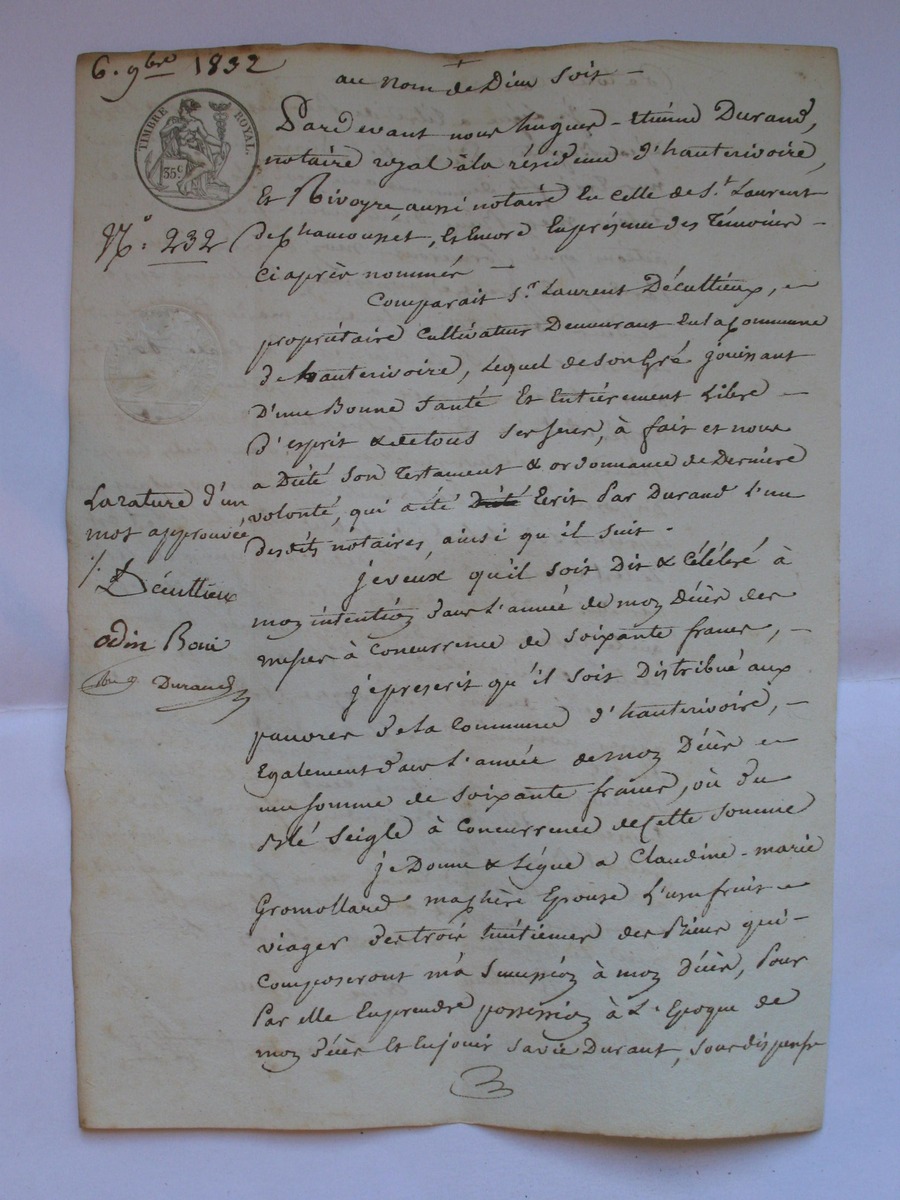 6. 9bre 1832
au nom de Dieu soit —
TIMBRE ROYAL.
35c
No. 232
Pardevant nous hugues - étiénne Durand,
notaire royal à la résidence d'hauterivoire,
Et Rivoyre aussi notaire En celle de St. Laurent
de Chamousset, Et Encore En présence des Témoins —
ci après nommés —
Comparait Sr. Laurent Décultieux,
propriétaire Cultivateur Demeurant En la Commune
de hauterivoire, Lequel de son Gré jouissant
D'une Bonne Santé Et Entièrement Libre —
d'esprit & de tous ses sens, à fait et nous
a Dicté Son Testament & ordonnance de Dernière
volonté, qui a été Dicté Ecrit Par Durand L'un
desdits notaires, ainsi qu'il suit.
La rature d'un
mot approuvée
Décultieux
odin Boni
Durand
je veux qu'il soit Dit & Célébré à
mon intention dans L'année de mon Décès des
messes à Concurrence de Soixante francs, —
je prescrit qu'il soit Distribué aux
pauvres de la Commune d'hauterivoire, —
Egalement dans L'année de mon Décès
une somme de Soixante francs, où du
Blé Seigle à Concurrence de Cette Somme
je Donne & Légue a Claudine - marie
Gromollard ma chère Epouse L'usufruit
viager des trois huitièmes des Biens qui —
Composeront ma Succession à mon Décès, Pour
Par elle En prendre possession à L'Epoque de
mon décès Et En jouir Sa vie Durant, sous dispense